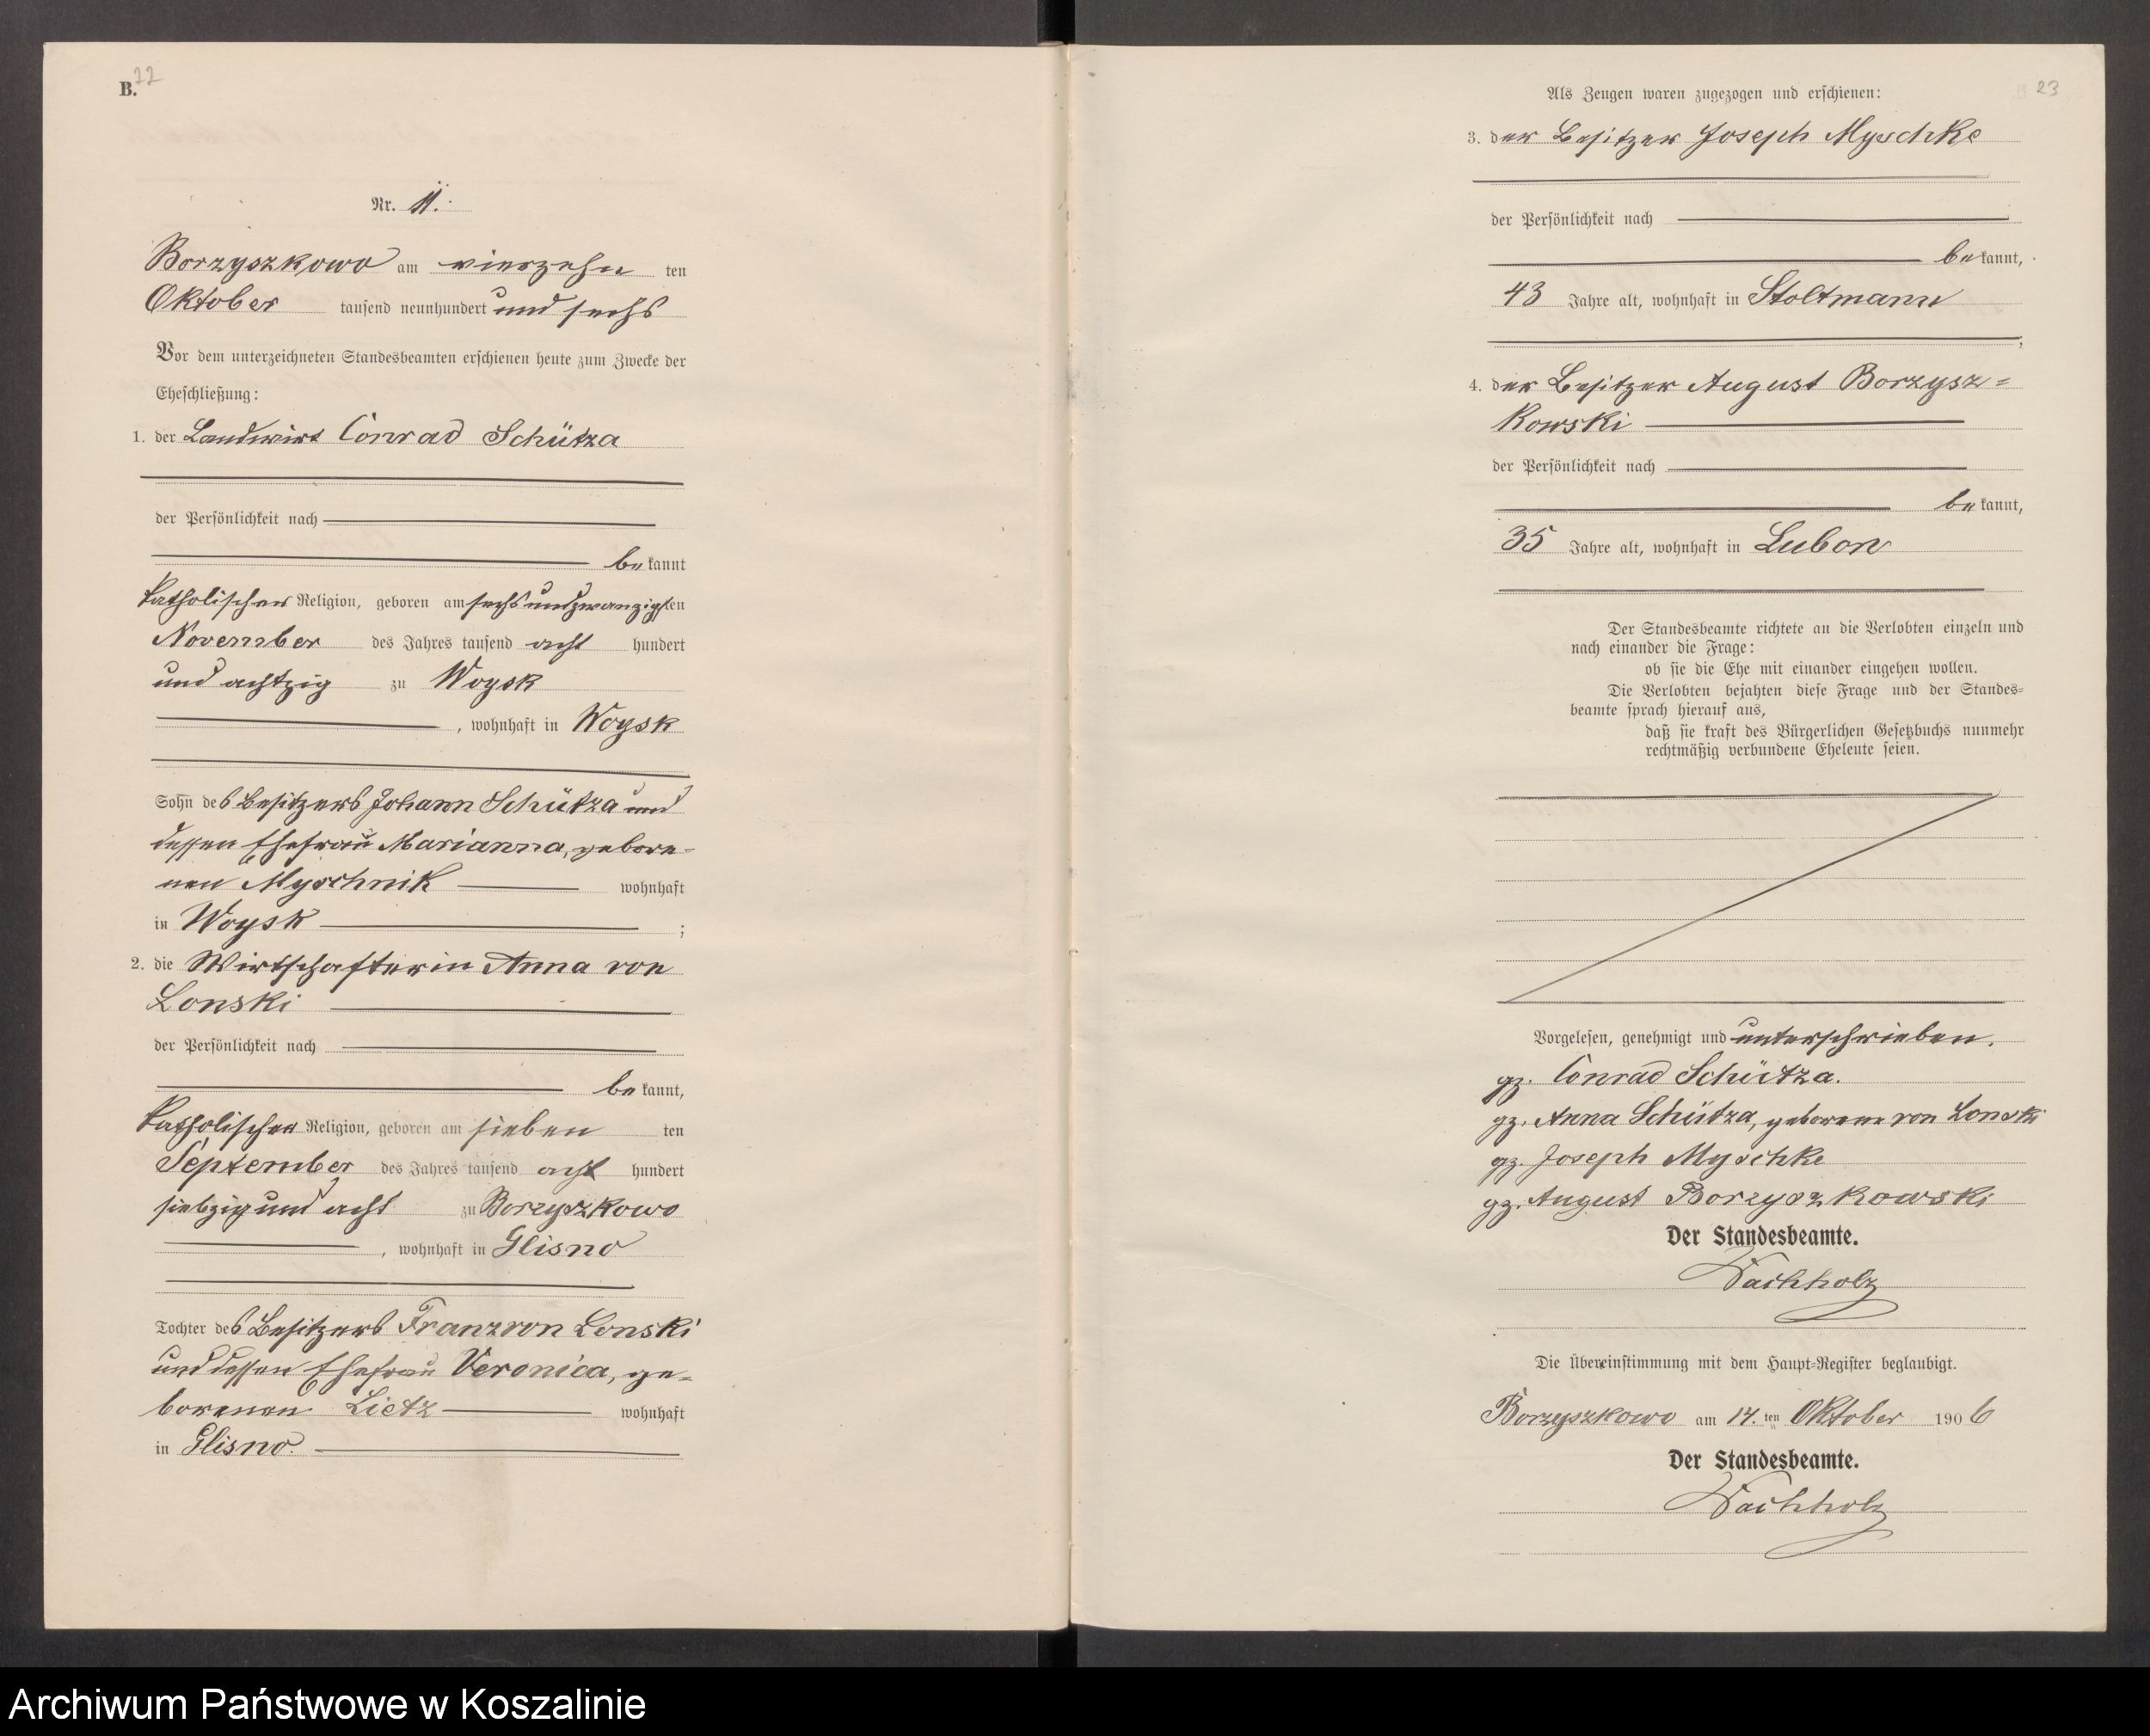 B. 22
Nr. 11.
Borzyszkowo am vierzehn ten
Oktober tausend neunhundert und sechs
Vor dem unterzeichneten Standesbeamten erschienen heute zum Zwecke der
Eheschließung:
1. der Landwirt Conrad Schütza
der Persönlichkeit nach
be kannt
katholischer Religion, geboren am sechsundzwanzigsten
November des Jahres tausend acht hundert
und achtzig zu Woysk
, wohnhaft in Woysk
Sohn des Besitzers Johann Schütza und
dessen Ehefrau Marianna, gebore-
nen Myschnik wohnhaft
in Woysk ;
2. die Wirtschafterin Anna von
Lonski
der Persönlichkeit nach
be kannt,
katholischer Religion, geboren am sieben ten
September des Jahres tausend acht hundert
siebzig und acht zu Borzyszkowo
, wohnhaft in Glisno
Tochter des Besitzers Franz von Lonski
und dessen Ehefrau Veronica, ge-
borenen Lietz wohnhaft
in Glisno.
23
Als Zeugen waren zugezogen und erschienen:
3. der Besitzer Joseph Myschke
der Persönlichkeit nach
be kannt,
43 Jahre alt, wohnhaft in Stoltmann
;
4. der Besitzer August Borzysz=
kowski
der Persönlichkeit nach
be kannt,
35 Jahre alt, wohnhaft in Lubon
Der Standesbeamte richtete an die Verlobten einzeln und
nach einander die Frage:
ob sie die Ehe mit einander eingehen wollen.
Die Verlobten bejahten diese Frage und der Standes=
beamte sprach hierauf aus,
daß sie kraft des Bürgerlichen Gesetzbuchs nunmehr
rechtmäßig verbundene Eheleute seien.
Vorgelesen, genehmigt und unterschrieben.
gz. Conrad Schütza.
gz. Anna Schütza, geborene von Lonski
gz. Joseph Myschke
gz. August Borzyszkowski
Der Standesbeamte.
Wachholz
Die Übereinstimmung mit dem Haupt=Register beglaubigt.
Borzyszkowo am 14. ten Oktober 1906
Der Standesbeamte.
Wachholz
Archiwum Państwowe w Koszalinie